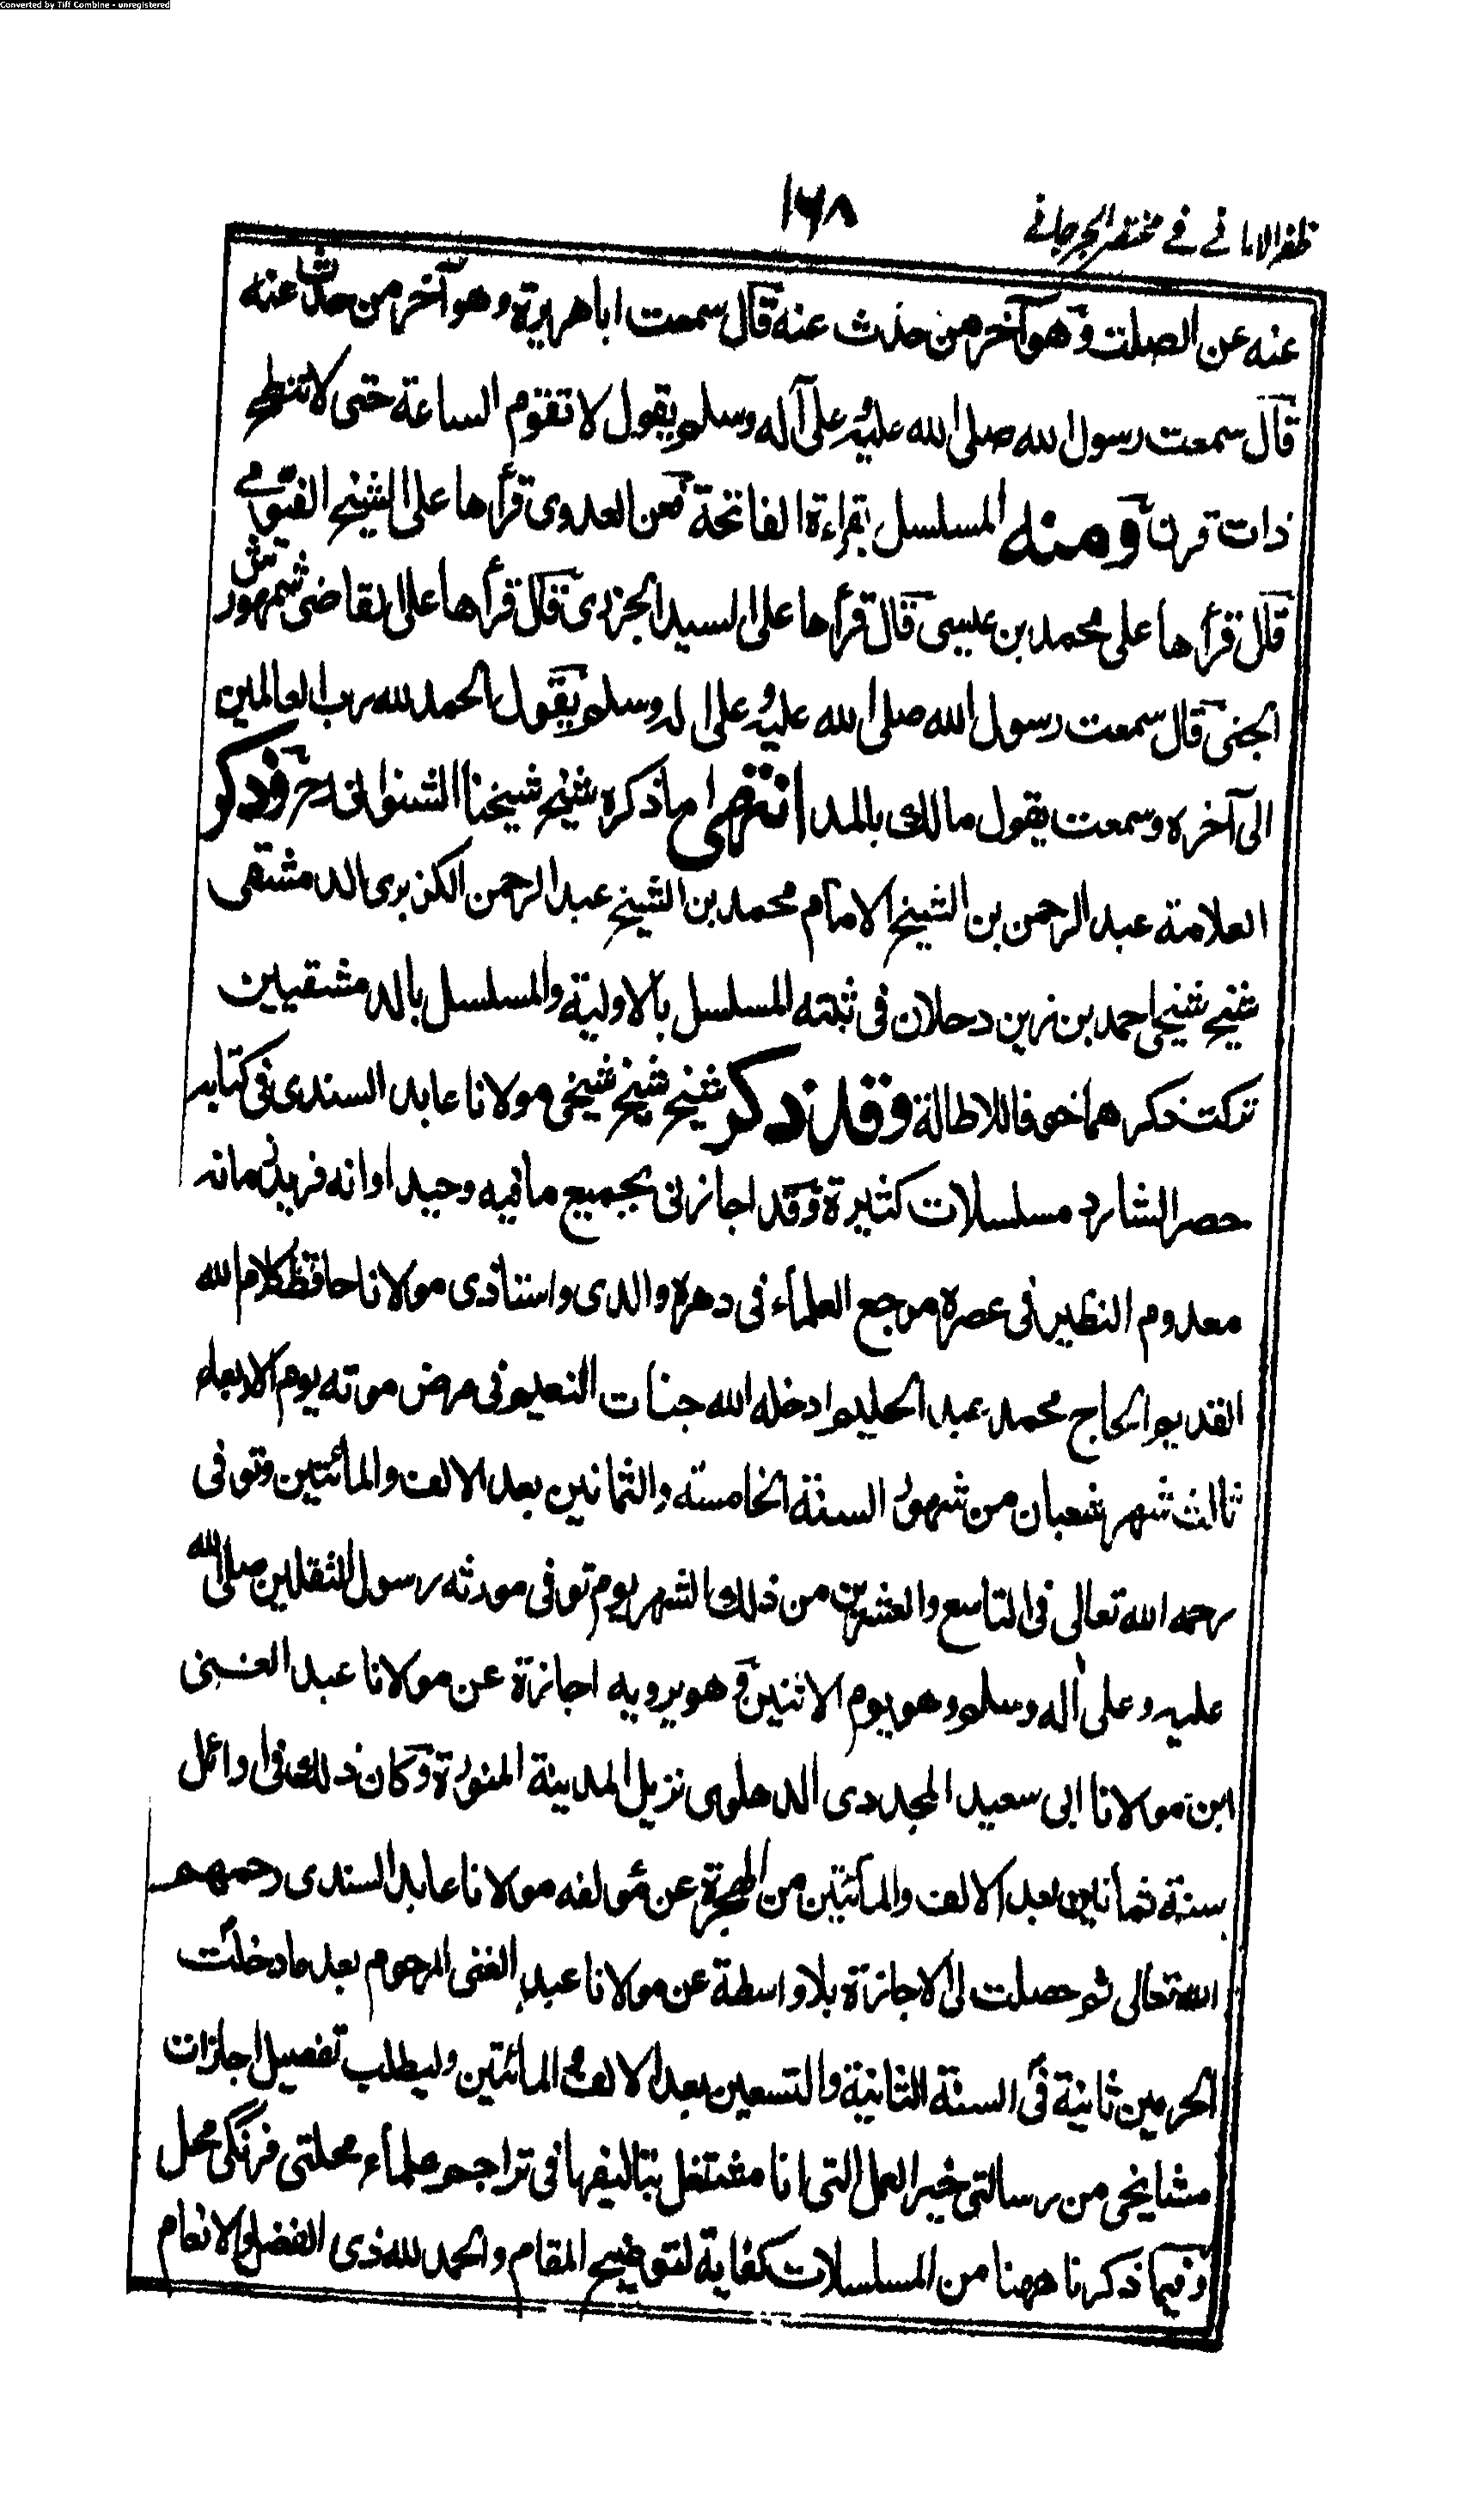 Converted by Tiff Combine - unregistered
ظفر الامانے فے مختصر الجرجانے
۱۶۸
عنه عن الصلت وهو آخر من حدث عنه قال سمعت اباهريرة وهو آخر من حدث عنه
قال سمعت رسول الله صلى الله عليه وعلى آله وسلم يقول لا تقوم الساعة حتى لا تنطح
ذات قرن ومنه المسلسل بقراءة الفاتحة فعن العدوى قرأها على الشيخ الفيومے
قال قرأها على محمد بن عيسى قال قرأها على السيد الجزرى قال قرأها على القاضى شمهورش
الجنى قال سمعت رسول الله صلى الله عليه وعلى اله وسلم يقول الحمد لله رب العالمين
الى آخره وسمعت يقول مالك بالمد انتهى ما ذكره شيخ شيخنا الشنوانى رح وذكر
العلامة عبد الرحمن بن الشيخ الامام محمد بن الشيخ عبد الرحمن الكزبرى الدمشقى
شيخ شيخى احمد بن زين دحلان فى ثبته المسلسل بالاولية والمسلسل بالدمشقيين
تركت ذكرهما خوفا للاطالة وقد ذكر شيخ شيخ شيخى مولانا عابد السندى فى كتابه
حصر الشارد مسلسلات كثيرة وقد اجازنى بجميع ما فيه وحيد اوانه فريد زمانه
معدوم النظير فى عصره مرجع العلماء فى دهره والدى واستاذى مولانا حافظ كلام الله
القديم الحاج محمد عبد الحليم ادخله الله جنات النعيم فى مرض موته يوم الاربعاء
ثالث شهر شعبان من شهور السنة الخامسة والثمانين بعد الالف والمأئتين وتوفى
رحمه الله تعالى فى التاسع والعشرين من ذلك الشهر يوم توفى مورثه رسول الثقلين صلى الله
عليه وعلى اله وسلم وهو يوم الاثنين وهو يرويه اجازة عن مولانا عبد الغنى
ابن مولانا ابى سعيد المجددى الدهلوى نزيل المدينة المنورة وكان ذلك فى اوائل
سنة ثمانين بعد الالف والمأئتين من الهجرة عن مؤلفه مولانا عابد السندى رحمهم
الله تعالى ثم حصلت لى الاجازة بلا واسطة عن مولانا عبد الغنى المرحوم بعد ما دخلت
الحرمين ثانية فى السنة الثانية والتسعين بعد الالف والمأئتين وليطلب تفصيل اجازات
مشايخى من رسالتى خير العمل التى انا مشتغل بتاليفها فى تراجم علماء محلتى فرنگى محل
وفيما ذكرنا ههنا من المسلسلات كفاية لتوضيح المقام والحمد لله ذى الفضل والانعام